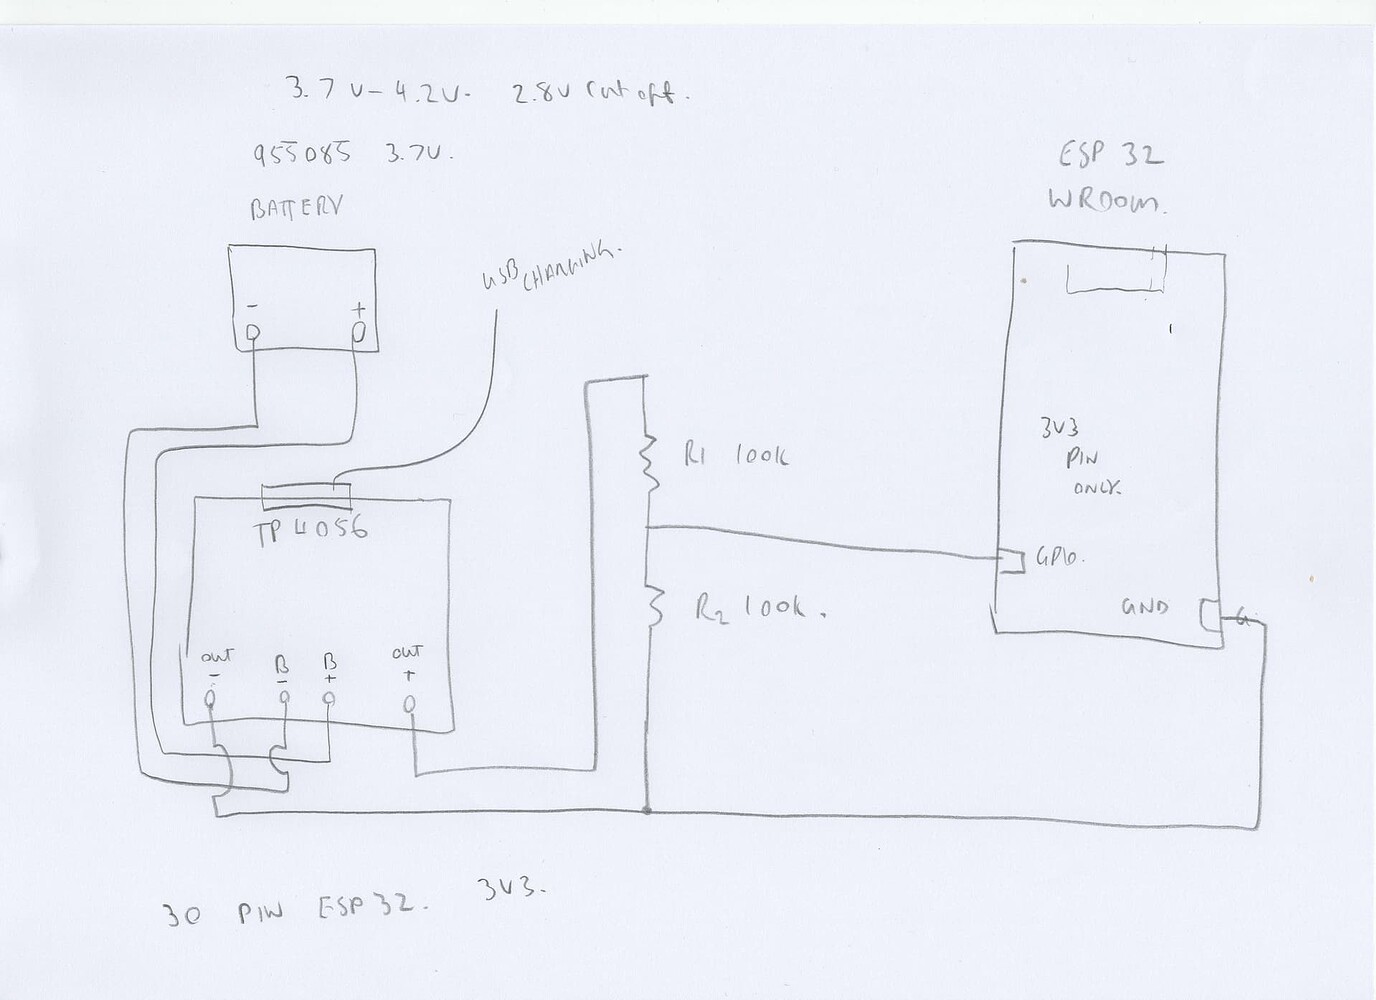 3.7V - 4.2V. 2.8V cut off.
955085 3.7V.
BATTERY
- +
USB CHARGING.
TP4056
OUT - B - B + OUT +
R1 100K
R2 100K.
ESP 32
WROOM.
3V3
PIN
ONLY.
GPIO.
GND G
30 PIN ESP32. 3V3.